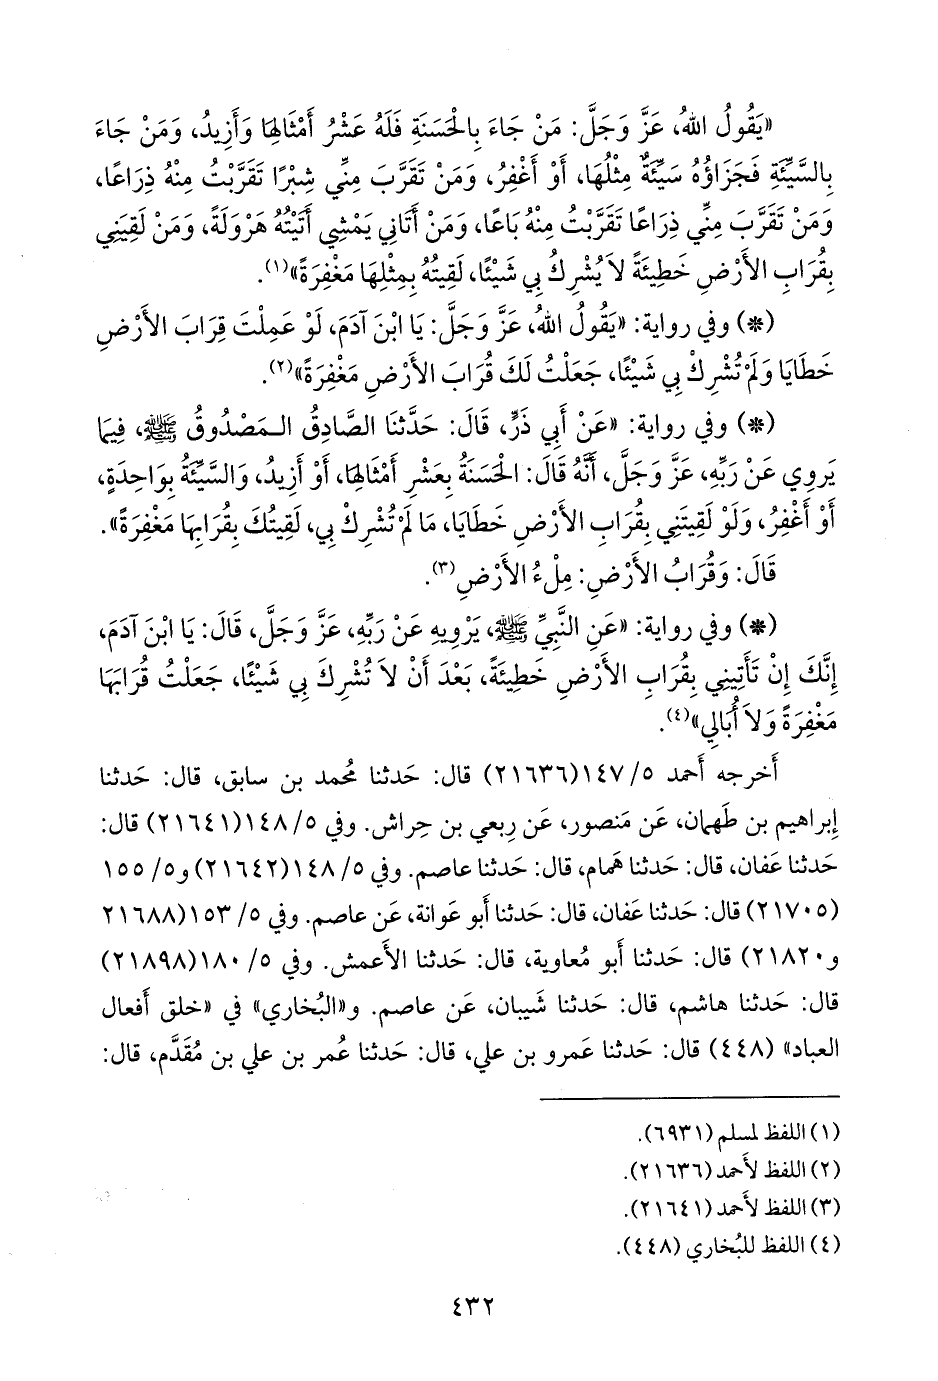 «يَقُولُ اللهُ، عَزَّ وَجَلَّ: مَنْ جَاءَ بِالْحَسَنَةِ فَلَهُ عَشْرُ أَمْثَالِهَا وَأَزِيدُ، وَمَنْ جَاءَ
بِالسَّيِّئَةِ فَجَزَاؤُهُ سَيِّئَةٌ مِثْلُهَا، أَوْ أَغْفِرُ، وَمَنْ تَقَرَّبَ مِنِّي شِبْرًا تَقَرَّبْتُ مِنْهُ ذِرَاعًا،
وَمَنْ تَقَرَّبَ مِنِّي ذِرَاعًا تَقَرَّبْتُ مِنْهُ بَاعًا، وَمَنْ أَتَانِي يَمْشِي أَتَيْتُهُ هَرْوَلَةً، وَمَنْ لَقِيَنِي
بِقُرَابِ الأَرْضِ خَطِيئَةً لاَ يُشْرِكُ بِي شَيْئًا، لَقِيتُهُ بِمِثْلِهَا مَغْفِرَةً»(١).
(*) وفي رواية: «يَقُولُ اللهُ، عَزَّ وَجَلَّ: يَا ابْنَ آدَمَ، لَوْ عَمِلْتَ قِرَابَ الأَرْضِ
خَطَايَا وَلَمْ تُشْرِكْ بِي شَيْئًا، جَعَلْتُ لَكَ قُرَابَ الأَرْضِ مَغْفِرَةً»(٢).
(*) وفي رواية: «عَنْ أَبِي ذَرٍّ، قَالَ: حَدَّثَنَا الصَّادِقُ الـمَصْدُوقُ ﷺ، فِيمَا
يَروِي عَنْ رَبِّهِ، عَزَّ وَجَلَّ، أَنَّهُ قَالَ: الْحَسَنَةُ بِعَشْرِ أَمْثَالِهَا، أَوْ أَزِيدُ، وَالسَّيِّئَةُ بِوَاحِدَةٍ،
أَوْ أَغْفِرُ، وَلَوْ لَقِيتَنِي بِقُرَابِ الأَرْضِ خَطَايَا، مَا لَمْ تُشْرِكْ بِي، لَقِيتُكَ بِقُرَابِهَا مَغْفِرَةً».
قَالَ: وَقُرَابُ الأَرْضِ: مِلْءُ الأَرْضِ(٣).
(*) وفي رواية: «عَنِ النَّبِيِّ ﷺ، يَرْوِيهِ عَنْ رَبِّهِ، عَزَّ وَجَلَّ، قَالَ: يَا ابْنَ آدَمَ،
إِنَّكَ إِنْ تَأْتِينِي بِقُرَابِ الأَرْضِ خَطِيئَةً، بَعْدَ أَنْ لاَ تُشْرِكَ بِي شَيْئًا، جَعَلْتُ قُرَابَهَا
مَغْفِرَةً وَلاَ أُبَالِي»(٤).
أَخرجه أَحمد ٥/ ١٤٧(٢١٦٣٦) قال: حَدثنا مُحمد بن سابق، قال: حَدثنا
إِبراهيم بن طَهمان، عَن مَنصور، عَن رِبعي بن حِراش. وفي ٥/ ١٤٨(٢١٦٤١) قال:
حَدثنا عَفان، قال: حَدثنا هَمام، قال: حَدثنا عاصم. وفي ٥/ ١٤٨(٢١٦٤٢) و٥/ ١٥٥
(٢١٧٠٥) قال: حَدثنا عَفان، قال: حَدثنا أَبو عَوانة، عَن عاصم. وفي ٥/ ١٥٣(٢١٦٨٨
و٢١٨٢٠) قال: حَدثنا أَبو مُعاوية، قال: حَدثنا الأَعمش. وفي ٥/ ١٨٠(٢١٨٩٨)
قال: حَدثنا هاشم، قال: حَدثنا شَيبان، عَن عاصم. و«البُخاري» في «خلق أَفعال
العباد» (٤٤٨) قال: حَدثنا عَمرو بن علي، قال: حَدثنا عُمر بن علي بن مُقَدَّم، قال:
(١) اللفظ لمسلم (٦٩٣١).
(٢) اللفظ لأَحمد (٢١٦٣٦).
(٣) اللفظ لأَحمد (٢١٦٤١).
(٤) اللفظ للبُخاري (٤٤٨).
٤٣٢